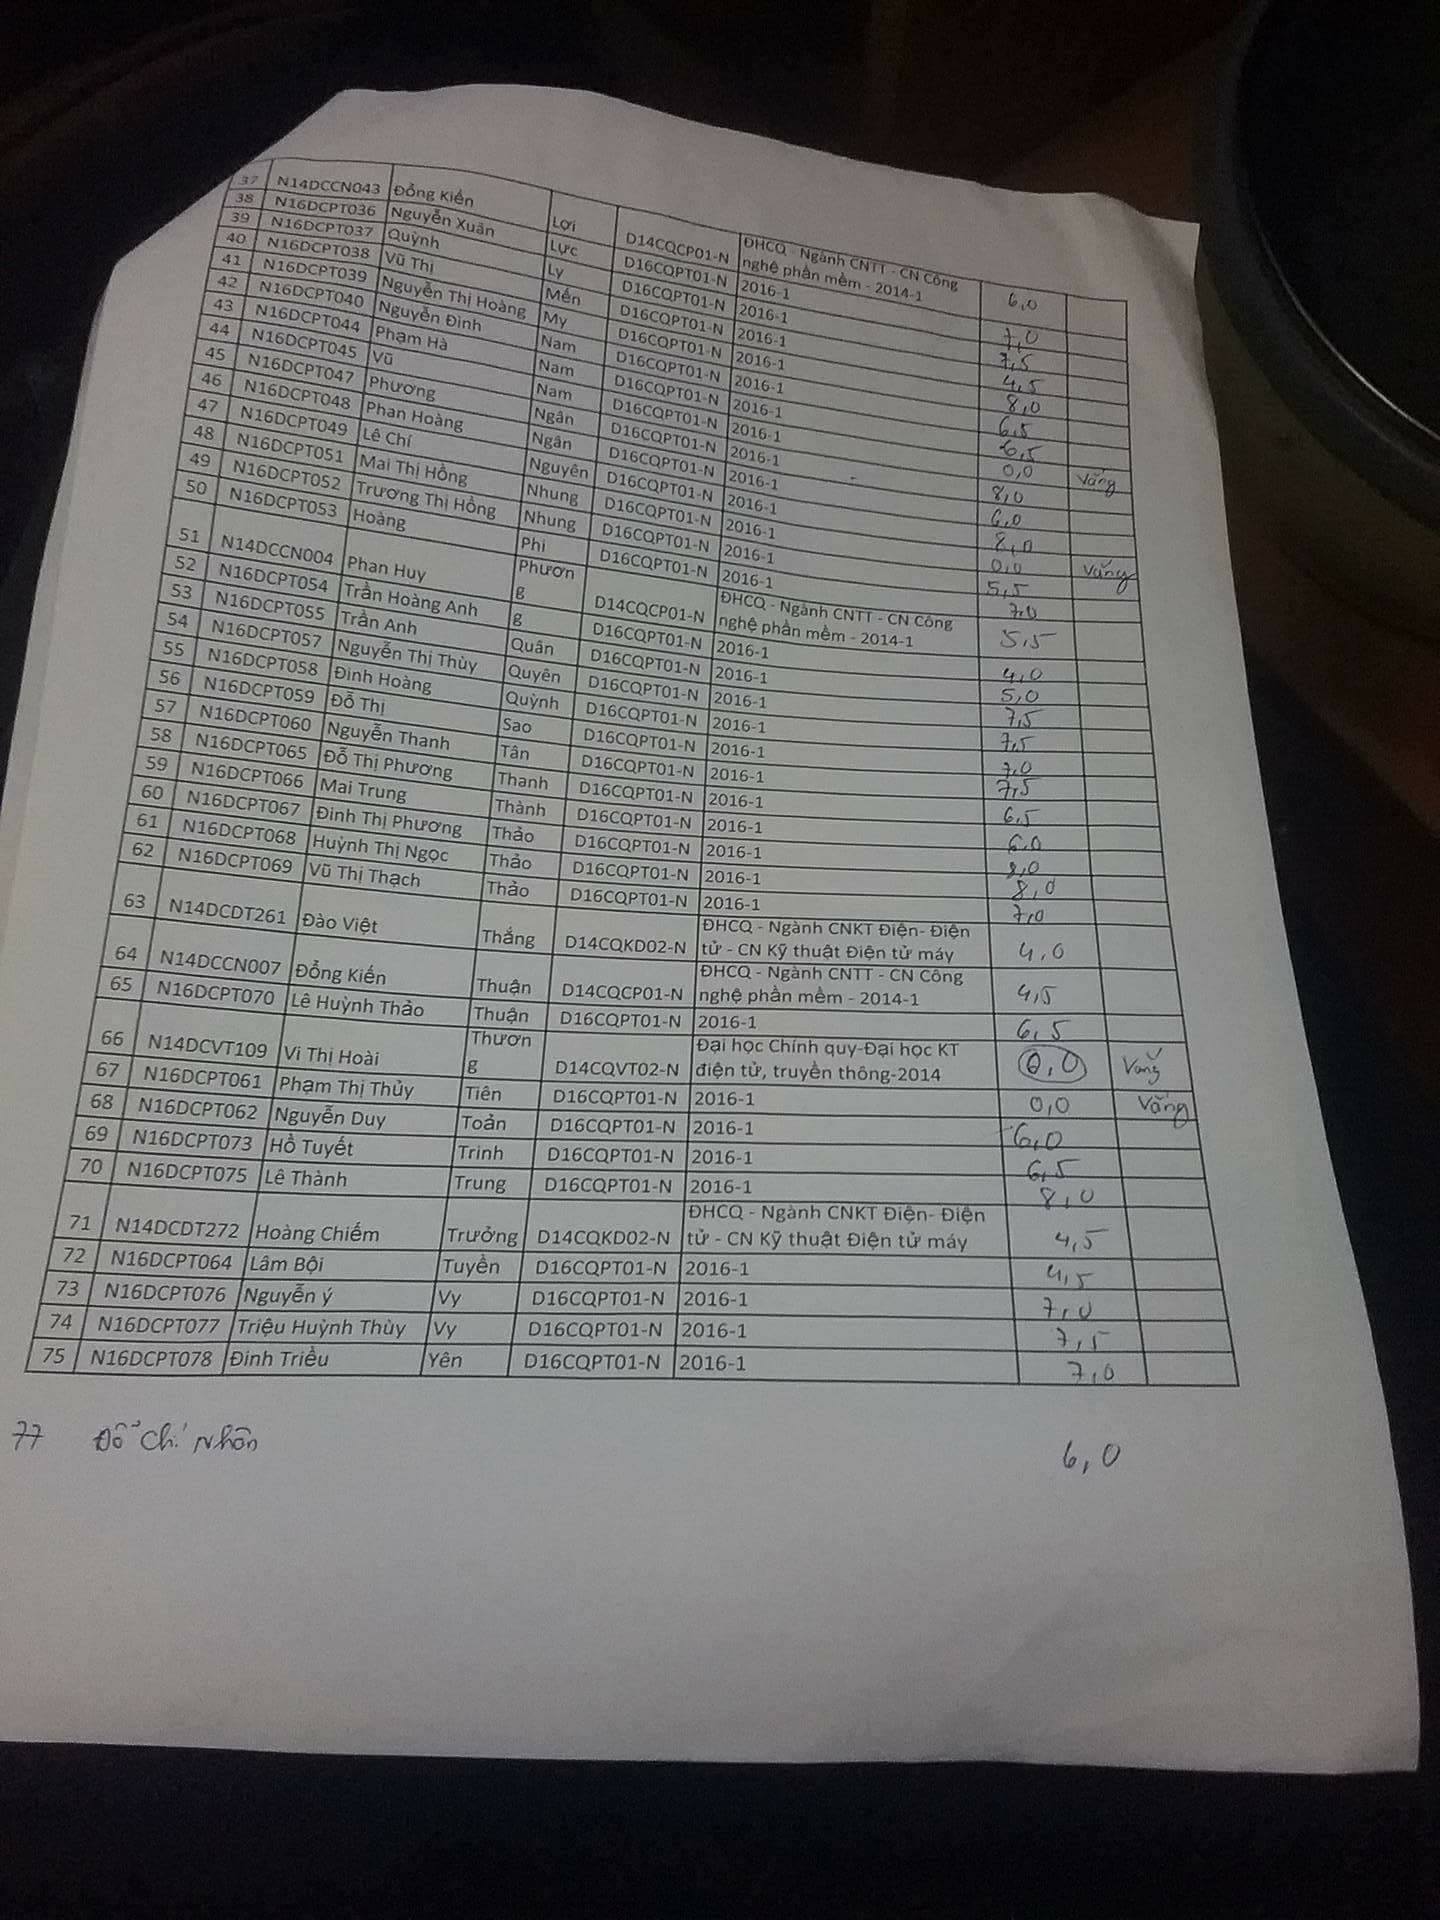 37 N14DCCN043 Đổng Kiến Lợi D14CQCP01-N ĐHCQ - Ngành CNTT - CN Công nghệ phần mềm - 2014-1 6,0
38 N16DCPT036 Nguyễn Xuân Lực D16CQPT01-N 2016-1 7,0
39 N16DCPT037 Quỳnh Ly D16CQPT01-N 2016-1 7,5
40 N16DCPT038 Vũ Thị Mến D16CQPT01-N 2016-1 4,5
41 N16DCPT039 Nguyễn Thị Hoàng My D16CQPT01-N 2016-1 8,0
42 N16DCPT040 Nguyễn Đình Nam D16CQPT01-N 2016-1 6,5
43 N16DCPT044 Phạm Hà Nam D16CQPT01-N 2016-1 6,5
44 N16DCPT045 Vũ Nam D16CQPT01-N 2016-1 0,0 Vắng
45 N16DCPT047 Phương Ngân D16CQPT01-N 2016-1 8,0
46 N16DCPT048 Phan Hoàng Ngân D16CQPT01-N 2016-1 6,0
47 N16DCPT049 Lê Chí Nguyên D16CQPT01-N 2016-1 8,0
48 N16DCPT051 Mai Thị Hồng Nhung D16CQPT01-N 2016-1 0,0 Vắng
49 N16DCPT052 Trương Thị Hồng Nhung D16CQPT01-N 2016-1 5,5
50 N16DCPT053 Hoàng Phi D16CQPT01-N 2016-1 7,0
51 N14DCCN004 Phan Huy Phươn g D14CQCP01-N ĐHCQ - Ngành CNTT - CN Công nghệ phần mềm - 2014-1 5,5
52 N16DCPT054 Trần Hoàng Anh g D16CQPT01-N 2016-1 4,0
53 N16DCPT055 Trần Anh Quân D16CQPT01-N 2016-1 5,0
54 N16DCPT057 Nguyễn Thị Thùy Quyên D16CQPT01-N 2016-1 7,5
55 N16DCPT058 Đinh Hoàng Quỳnh D16CQPT01-N 2016-1 7,5
56 N16DCPT059 Đỗ Thị Sao D16CQPT01-N 2016-1 7,0
57 N16DCPT060 Nguyễn Thanh Tân D16CQPT01-N 2016-1 7,5
58 N16DCPT065 Đỗ Thị Phương Thanh D16CQPT01-N 2016-1 6,5
59 N16DCPT066 Mai Trung Thành D16CQPT01-N 2016-1 6,0
60 N16DCPT067 Đinh Thị Phương Thảo D16CQPT01-N 2016-1 8,0
61 N16DCPT068 Huỳnh Thị Ngọc Thảo D16CQPT01-N 2016-1 8,0
62 N16DCPT069 Vũ Thị Thạch Thảo D16CQPT01-N 2016-1 7,0
63 N14DCDT261 Đào Việt Thắng D14CQKD02-N ĐHCQ - Ngành CNKT Điện- Điện tử - CN Kỹ thuật Điện tử máy 4,0
64 N14DCCN007 Đổng Kiến Thuận D14CQCP01-N ĐHCQ - Ngành CNTT - CN Công nghệ phần mềm - 2014-1 4,5
65 N16DCPT070 Lê Huỳnh Thảo Thuận D16CQPT01-N 2016-1 6,5
66 N14DCVT109 Vi Thị Hoài Thươn g D14CQVT02-N Đại học Chính quy-Đại học KT điện tử, truyền thông-2014 0,0 Vắng
67 N16DCPT061 Phạm Thị Thủy Tiên D16CQPT01-N 2016-1 0,0 Vắng
68 N16DCPT062 Nguyễn Duy Toản D16CQPT01-N 2016-1 6,0
69 N16DCPT073 Hồ Tuyết Trinh D16CQPT01-N 2016-1 6,5
70 N16DCPT075 Lê Thành Trung D16CQPT01-N 2016-1 8,0
71 N14DCDT272 Hoàng Chiếm Trưởng D14CQKD02-N ĐHCQ - Ngành CNKT Điện- Điện tử - CN Kỹ thuật Điện tử máy 4,5
72 N16DCPT064 Lâm Bội Tuyền D16CQPT01-N 2016-1 4,5
73 N16DCPT076 Nguyễn ý Vy D16CQPT01-N 2016-1 7,0
74 N16DCPT077 Triệu Huỳnh Thùy Vy D16CQPT01-N 2016-1 7,5
75 N16DCPT078 Đinh Triều Yên D16CQPT01-N 2016-1 7,0
77 Đỗ Chí Nhân 6,0